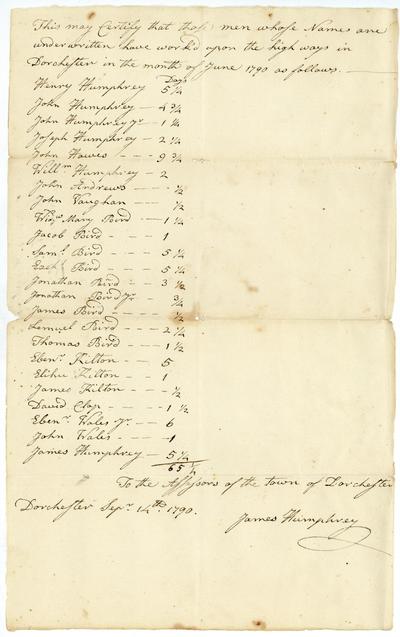 This may Certify that those men whose Names are
underwritten have work'd upon the high ways in
Dorchester in the month of June 1790 as follows. —
Days
Henry Humphrey 5 1/4
John Humphrey – 4 3/4
John Humphrey Jr – 1 1/4
Joseph Humphrey – 2 1/4
John Hawes - - - 9 3/4
Willm Humphrey – 2
John Andrews - - - 1/2
John Vaughan - - - 1/2
Widw Mary Bird - - 1 1/4
Jacob Bird - - 1
Saml Bird - - - 5 1/4
Bird - - - 5 1/4
Jonathan Bird - - 3 1/2
Jonathan Bird Jr - 3/4
James Bird - - - 1/2
Lemuel Bird - - - 2 1/4
Thomas Bird - - - 1 1/2
Ebenr Kilton - - - 5
Elihu Kilton - - - 1
James Kilton - - - 1/2
David Clap - - - - 1 1/2
Ebenr Wales Jr - - 6
John Wales - - - 1
James Humphrey – 5 1/4
65 1/4
To the Assessors of the town of Dorchester
Dorchester Sepr 14th 1790.
James Humphrey